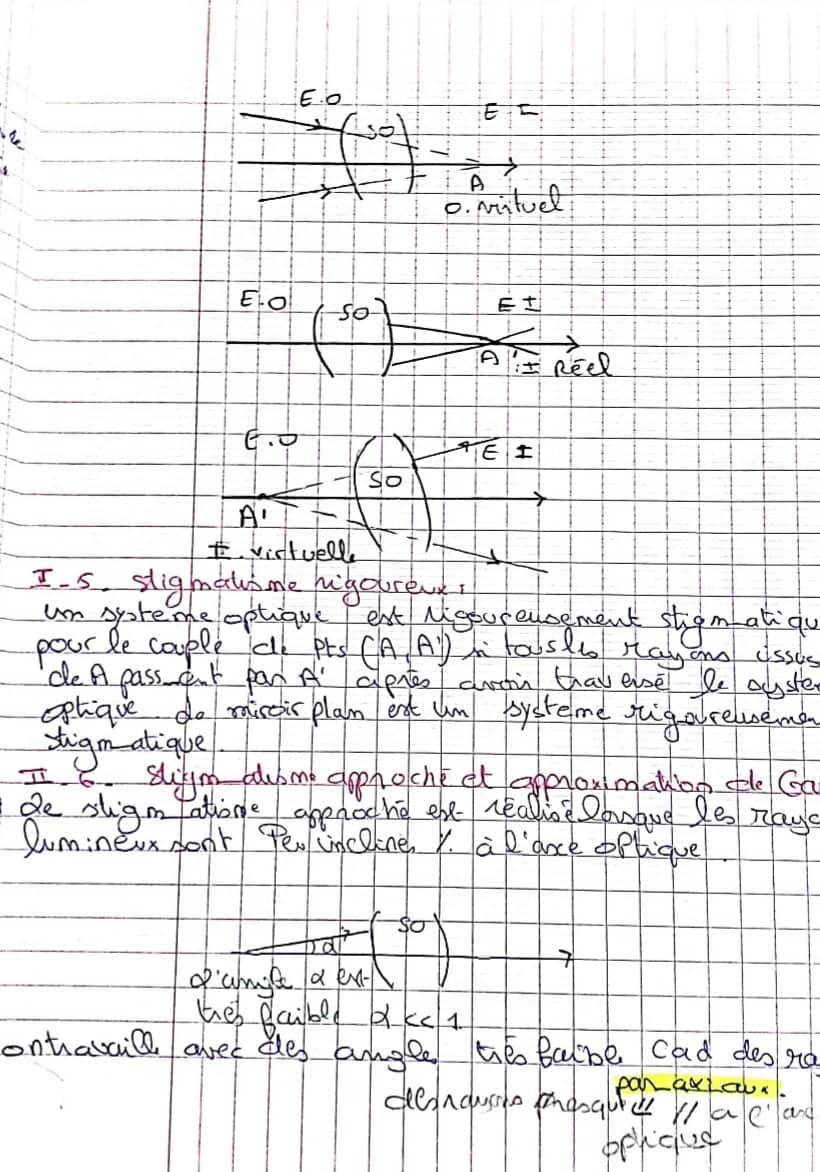 E.O
SO
E I
A
O. virtuel
E.O
SO
E I
A' : I Réel
E.O
SO
E I
A'
I. virtuelle
I-5. Stigmatisme rigoureux :
un système optique est rigoureusement stigmatiqu
pour le couple de pts (A, A') si tous les rayons issus
de A passent par A' après avoir traversé le syste
optique. Le miroir plan est un système rigoureusemen
stigmatique
II 6. Stigmatisme approché et approximation de Ga
Le stigmatisme approché est réalisé lorsque les rayo
lumineux sont Peu incline, %. à l'axe optique
SO
α
L'angle α est
très faible α << 1
on travaille avec des angle très faible cad des ra
par axiaux.
des rayons presque // a l'axe
optique